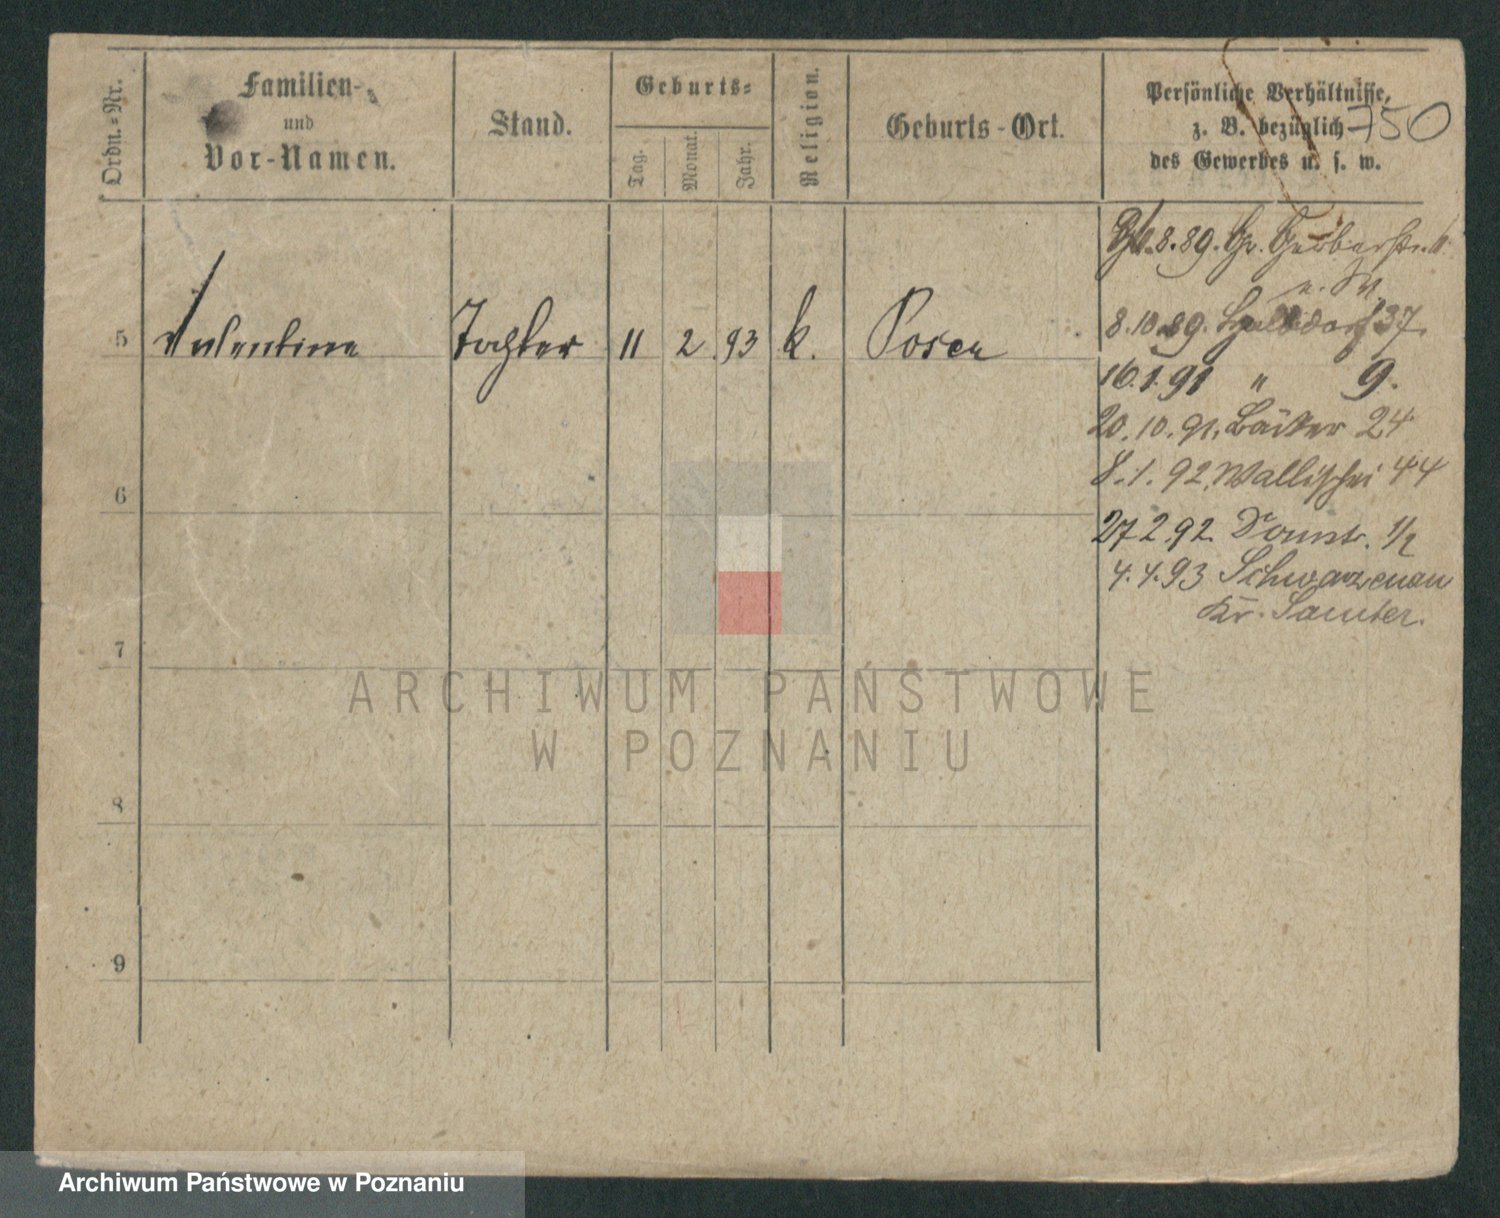 Ordn.-Nr.
Familien-
und
Vor-Namen.
Stand.
Geburts-
Tag.
Monat.
Jahr.
Religion.
Geburts-Ort.
Persönliche Verhältnisse,
z. B. bezüglich
des Gewerbes u. s. w.
750
8.89. Gr. Gerberstr.
5 Valentine Tochter 11 2 93 k. Posen
8.10.89. 37
16.1.91 " 9.
20.10.91. Bäcker 24
8.1.92. Wallischei 44
27 2.92. Domstr. 1/2
4.4.93 Schwarzenau
Kr. Samter.
6
7
8
9
ARCHIWUM PAŃSTWOWE
W POZNANIU
Archiwum Państwowe w Poznaniu